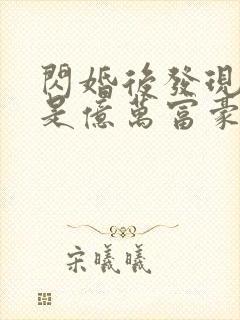 閃婚後發現
是億萬富豪
宋曦曦